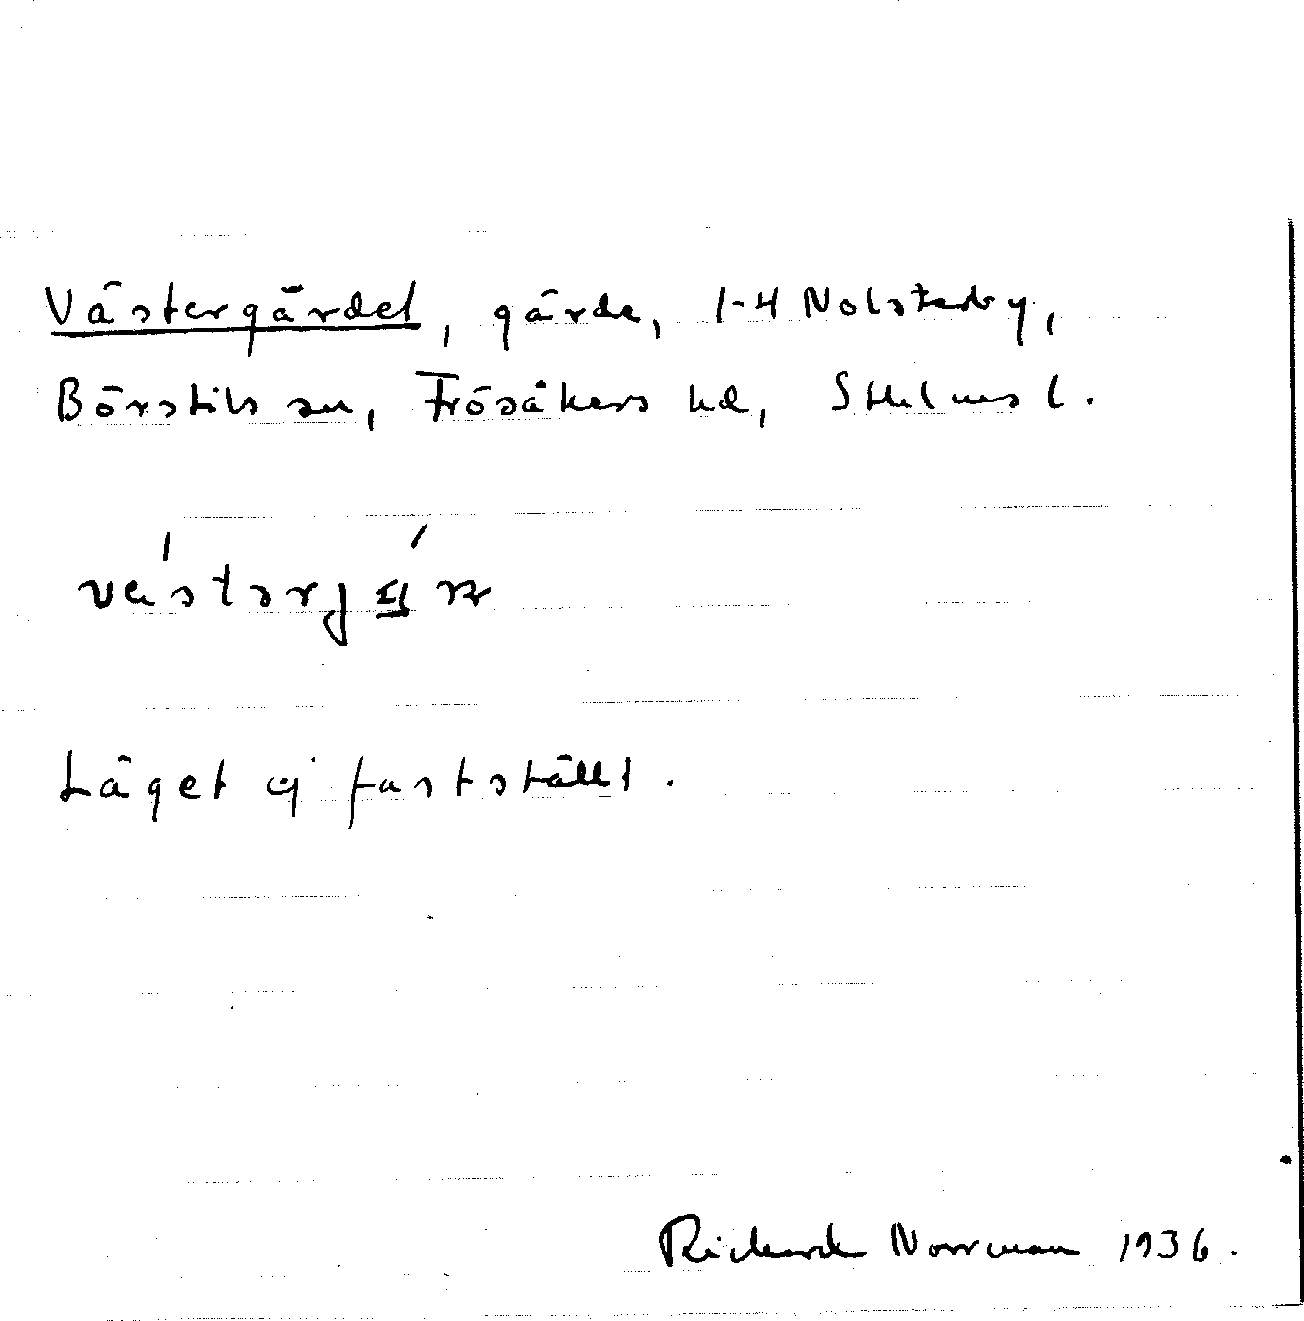 Västergärdet, gärde, 1-4 Nolsterby,
Börstils sn, Frösåkers hd, Sthlms l.
Läget ej fastställt.
Richard Norrman 1936.